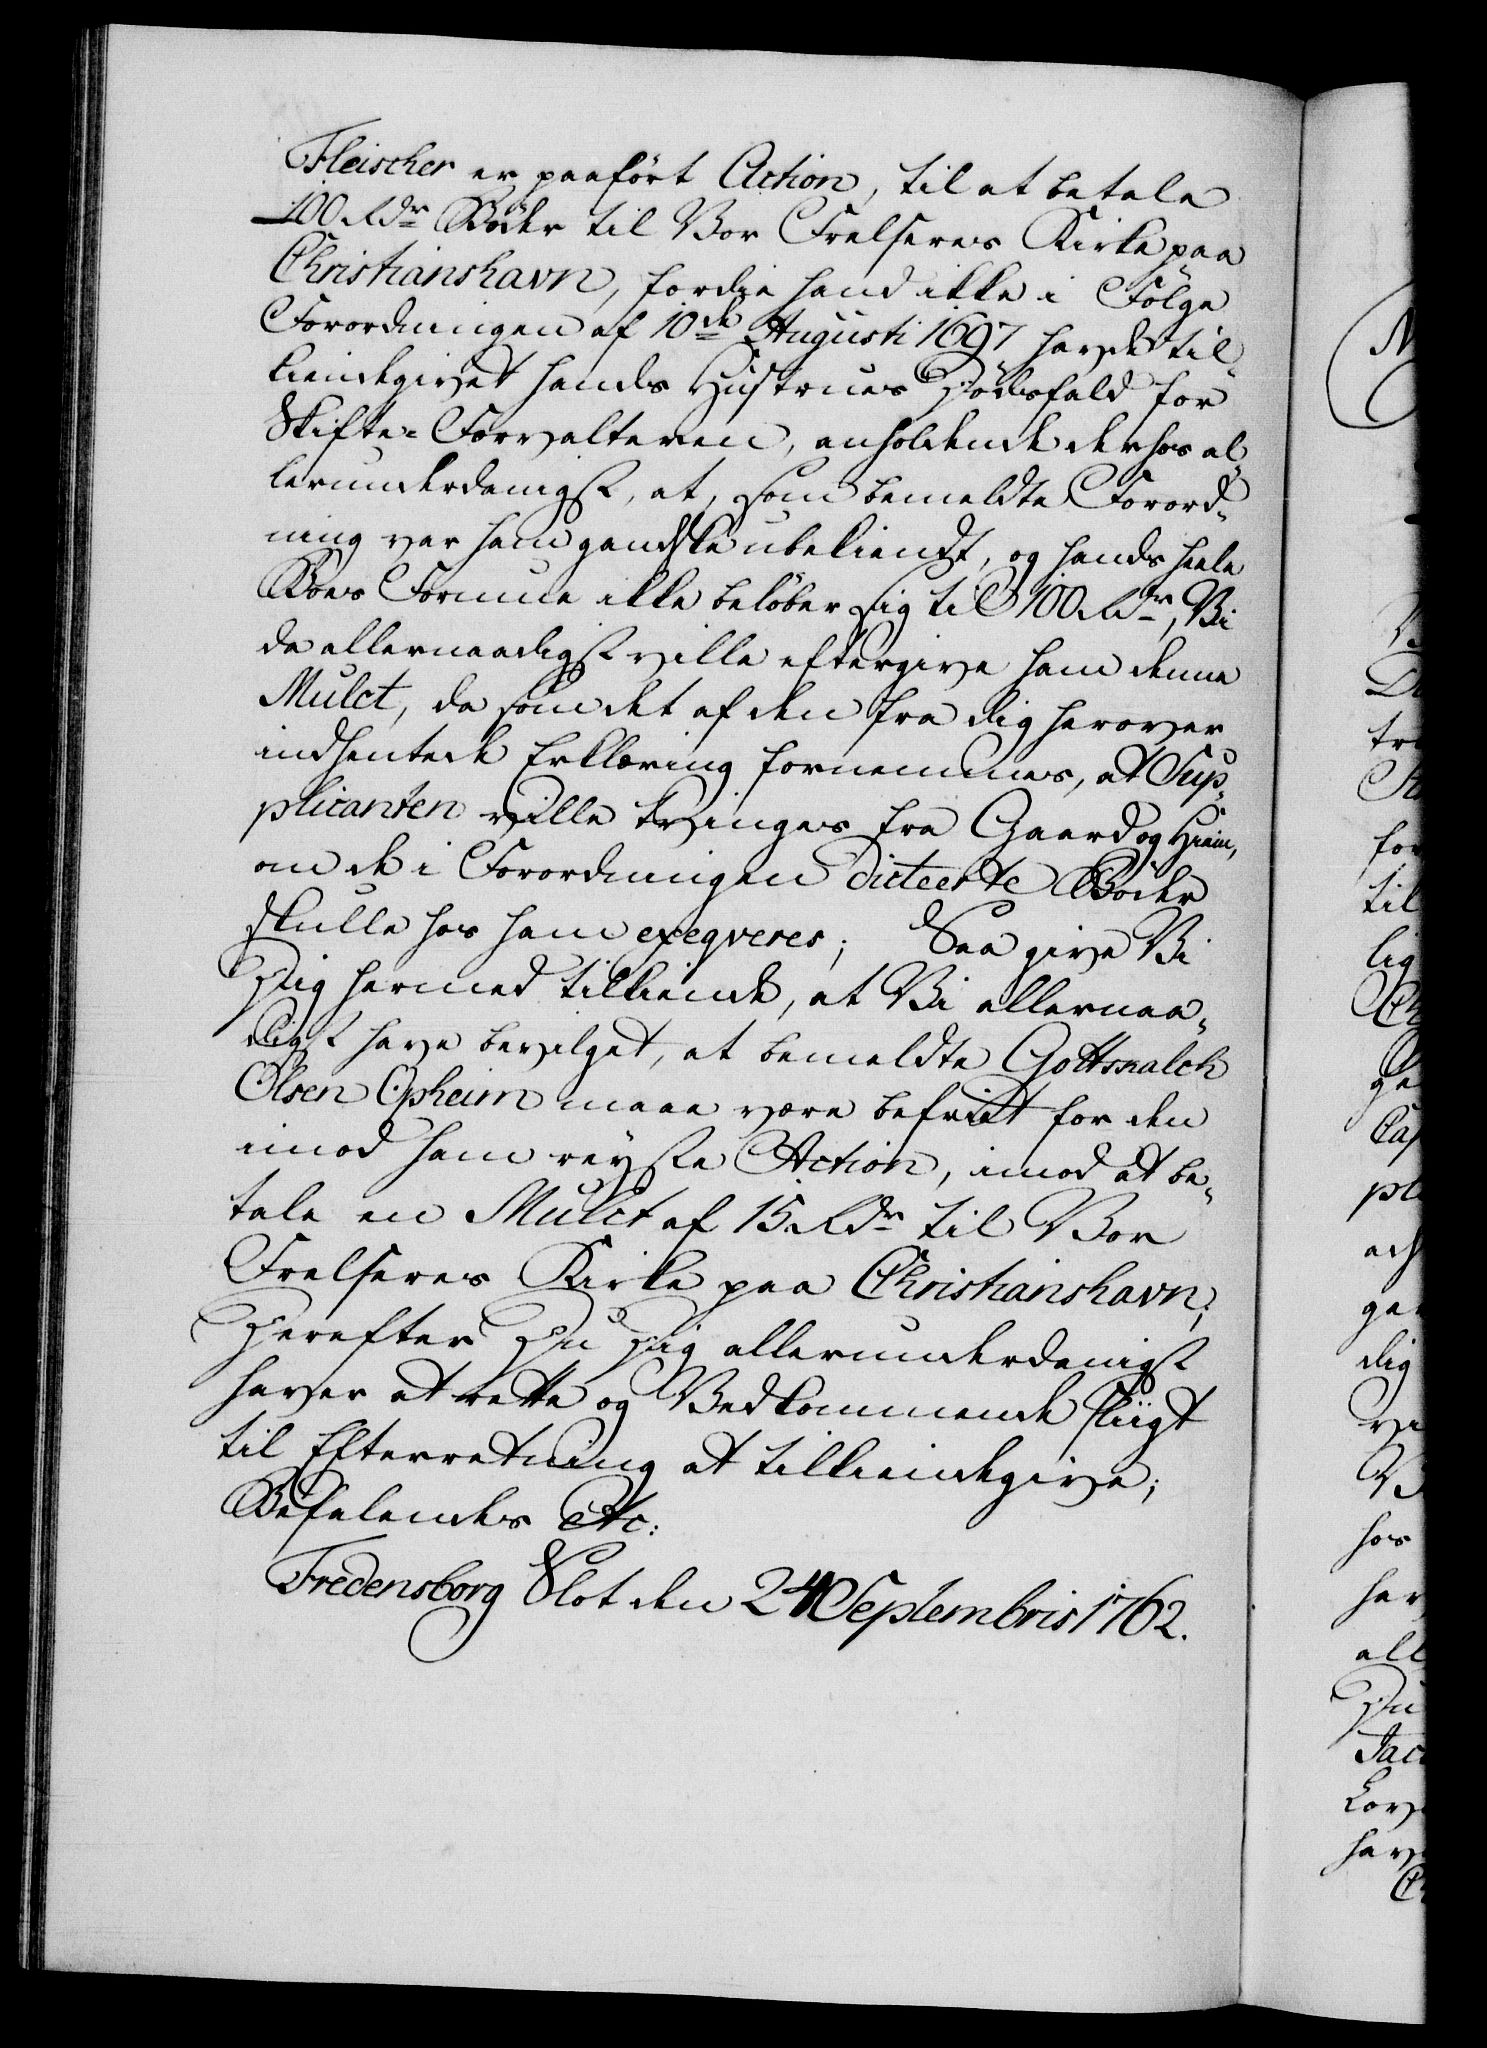 Fleischer er paaført Action, til at betale
100 Rdr Bøder til Vor Frelseres Kirke paa
Christianshavn, fordie hand ikke i Følge
Forordningen af 10de Augusti 1697 havde til-
kiendegivet hands Hustrues Dødsfald for
Skifte-Forvalteren, anholdende derhos al-
lerunderdanigst, at, som bemeldte Forord-
ning var ham gandske ubekiendt, og hands heele
Boes Formue ikke beløber sig til 100 Rdr, Vi
da allernaadigst ville eftergive ham denne
Mulct, da som det af den fra dig herover
indhentede Erklæring fornemmes, at Sup-
plicanten ville tvinges fra Gaard og Hiem,
om de i Forordningen dicteerte Bøder
skulle hos ham exeqveres; Saa give Vi
Dig hermed tilkiende, at Vi allernaa-
digst have bevilget, at bemeldte Gottskalck
Olsen Opheim maae være befriet for den
imod ham reyste Action, imod at be-
tale en Mulct af 15 Rdr til Vor
Frelseres Kirke paa Christianshavn;
Derefter Du Dig allerunderdanigst
haver at rette og Vedkommende sligt
til Efterretning at tilkiendegive;
Befalendes etc:
Fredensborg Slot den 24 Septembris 1762.